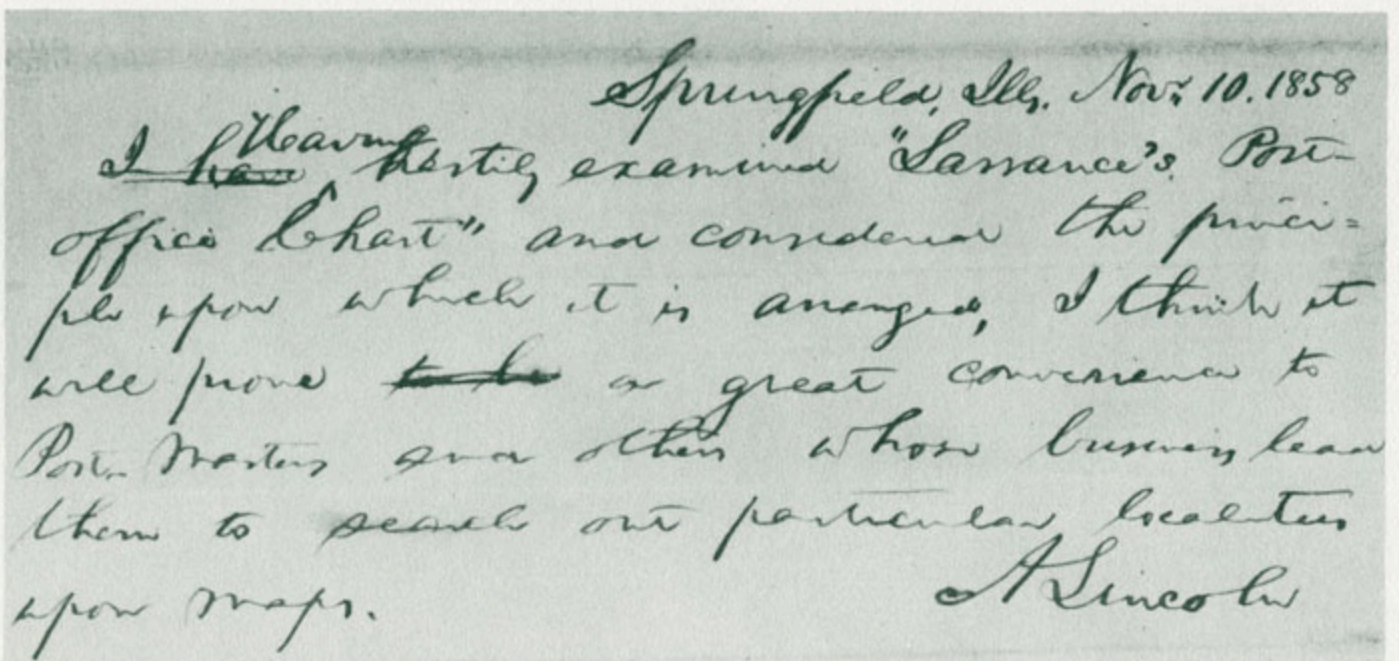 Springfield, Ills. Nov. 10. 1858
I have Having hastily examined "Larrance's Post-
office Chart" and considered the princi=
ple upon which it is arranged, I think it
will prove to be a great convenience to
Post-Masters and others whose business lead
them to search out particular localities
upon maps.
A Lincoln